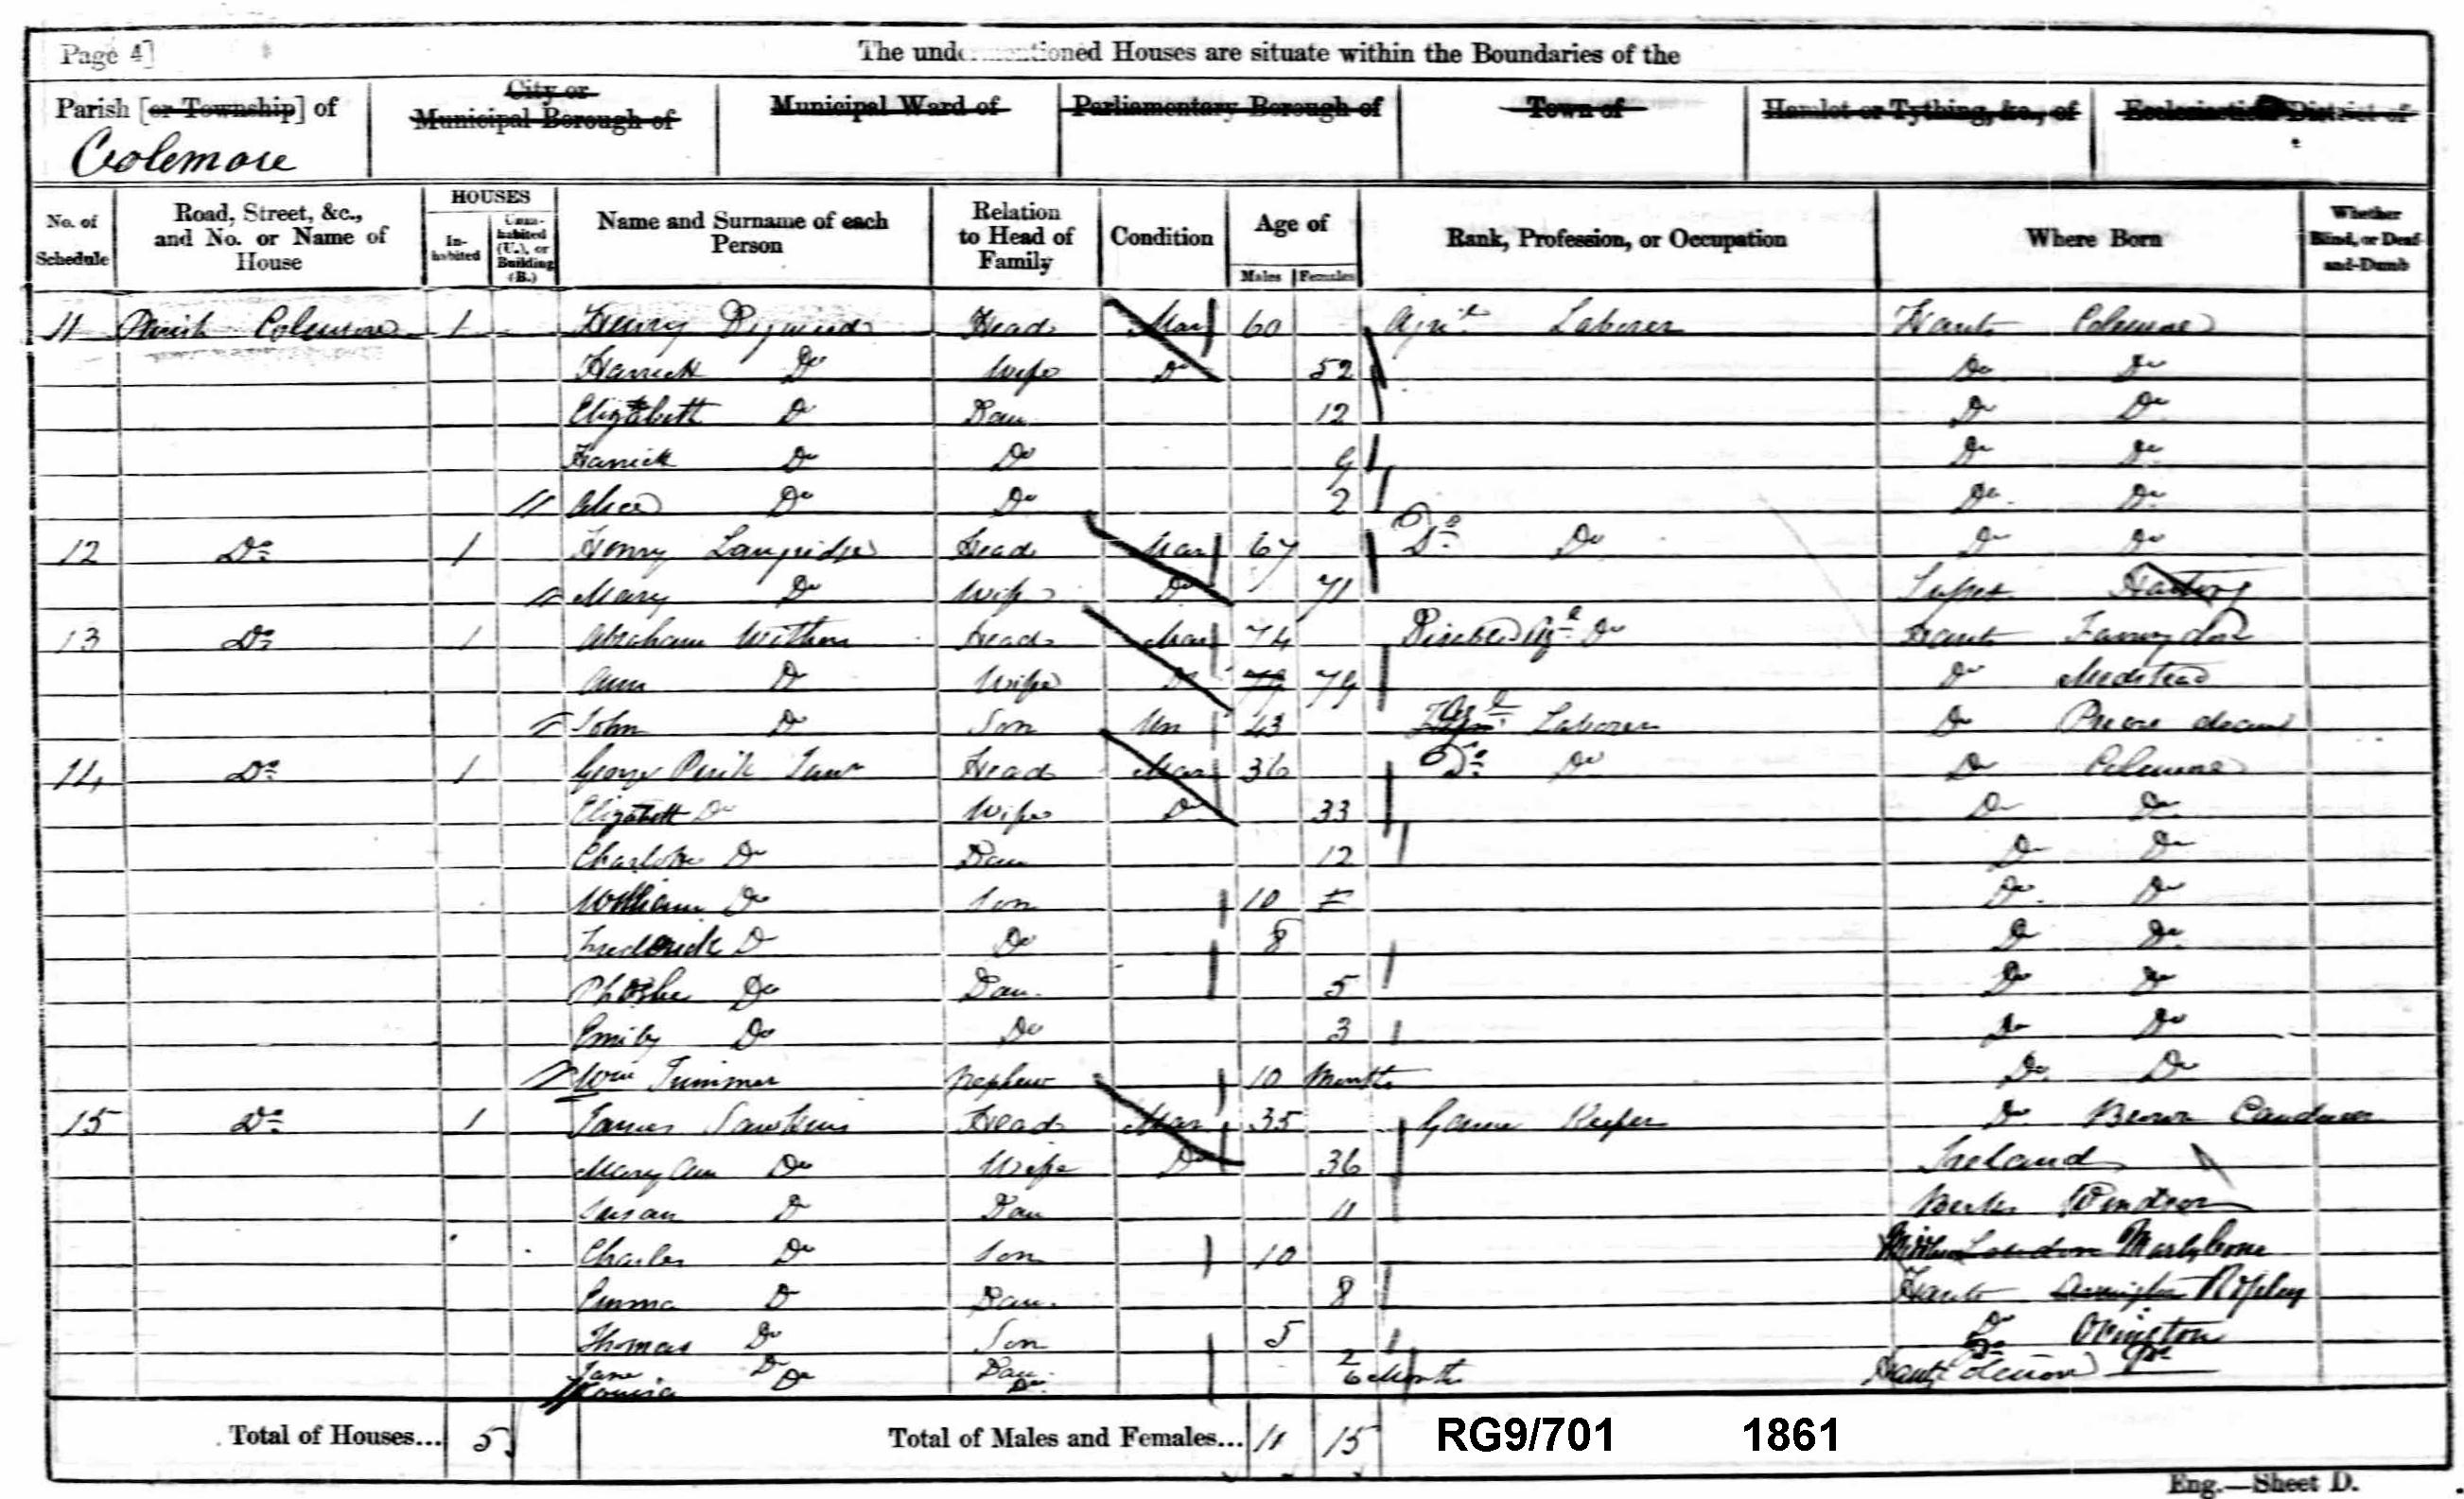 Page 4]
The undermentioned Houses are situate within the Boundaries of the
Parish [or Township] of
City or Municipal Borough of
Municipal Ward of
Parliamentary Borough of
Town of
Hamlet or Tything, &c., of
Ecclesiastical District of
Colemore
No. of Schedule
Road, Street, &c., and No. or Name of House
HOUSES
In-habited
Unin-habited (U.), or Building (B.)
Name and Surname of each Person
Relation to Head of Family
Condition
Age of
Males Females
Rank, Profession, or Occupation
Where Born
Whether Blind, or Deaf-and-Dumb
11 Parish Colemore 1 Henry Head Mar 60 Agri Laborer Hants Colemore
Do Wife Do 52 Do Do
Elizabeth Do Dau 12 Do Do
Do Do 9 Do Do
Alice Do Do 2 Do Do
12 Do 1 Henry Head Mar 67 Do Do Do Do
Mary Do Wife Do 71 Sussex Harting
13 Do 1 Abraham Head Mar 74 Do Hants
Ann Do Wife Do 79 79 Do Medstead
John Do Son Un 43 Laborer Do
14 Do 1 George Head Mar 36 Do Do Do Colemore
Elizabeth Do Wife Do 33 Do Do
Charlotte Do Dau 12 Do Do
William Do Son 10 Do Do
Frederick Do Do 8 Do Do
Phoebe Do Dau 5 Do Do
Emily Do Do 3 Do Do
Wm Trimmer Nephew 10 Months Do Do
15 Do 1 James Head Mar 35 Game Keeper Do Brown Candover
Mary Ann Do Wife Do 36 Ireland
Susan Do Dau 11 Berks Windsor
Charles Do Son 10 London Marylebone
Emma Do Dau 8 Hants Ropley
Thomas Do Son 5 Do Ovington
Jane Do Dau 2
Louisa Do Do 6 Months Hants Colemore
Total of Houses... 5
Total of Males and Females... 11 15
RG9/701 1861
Eng.—Sheet D.